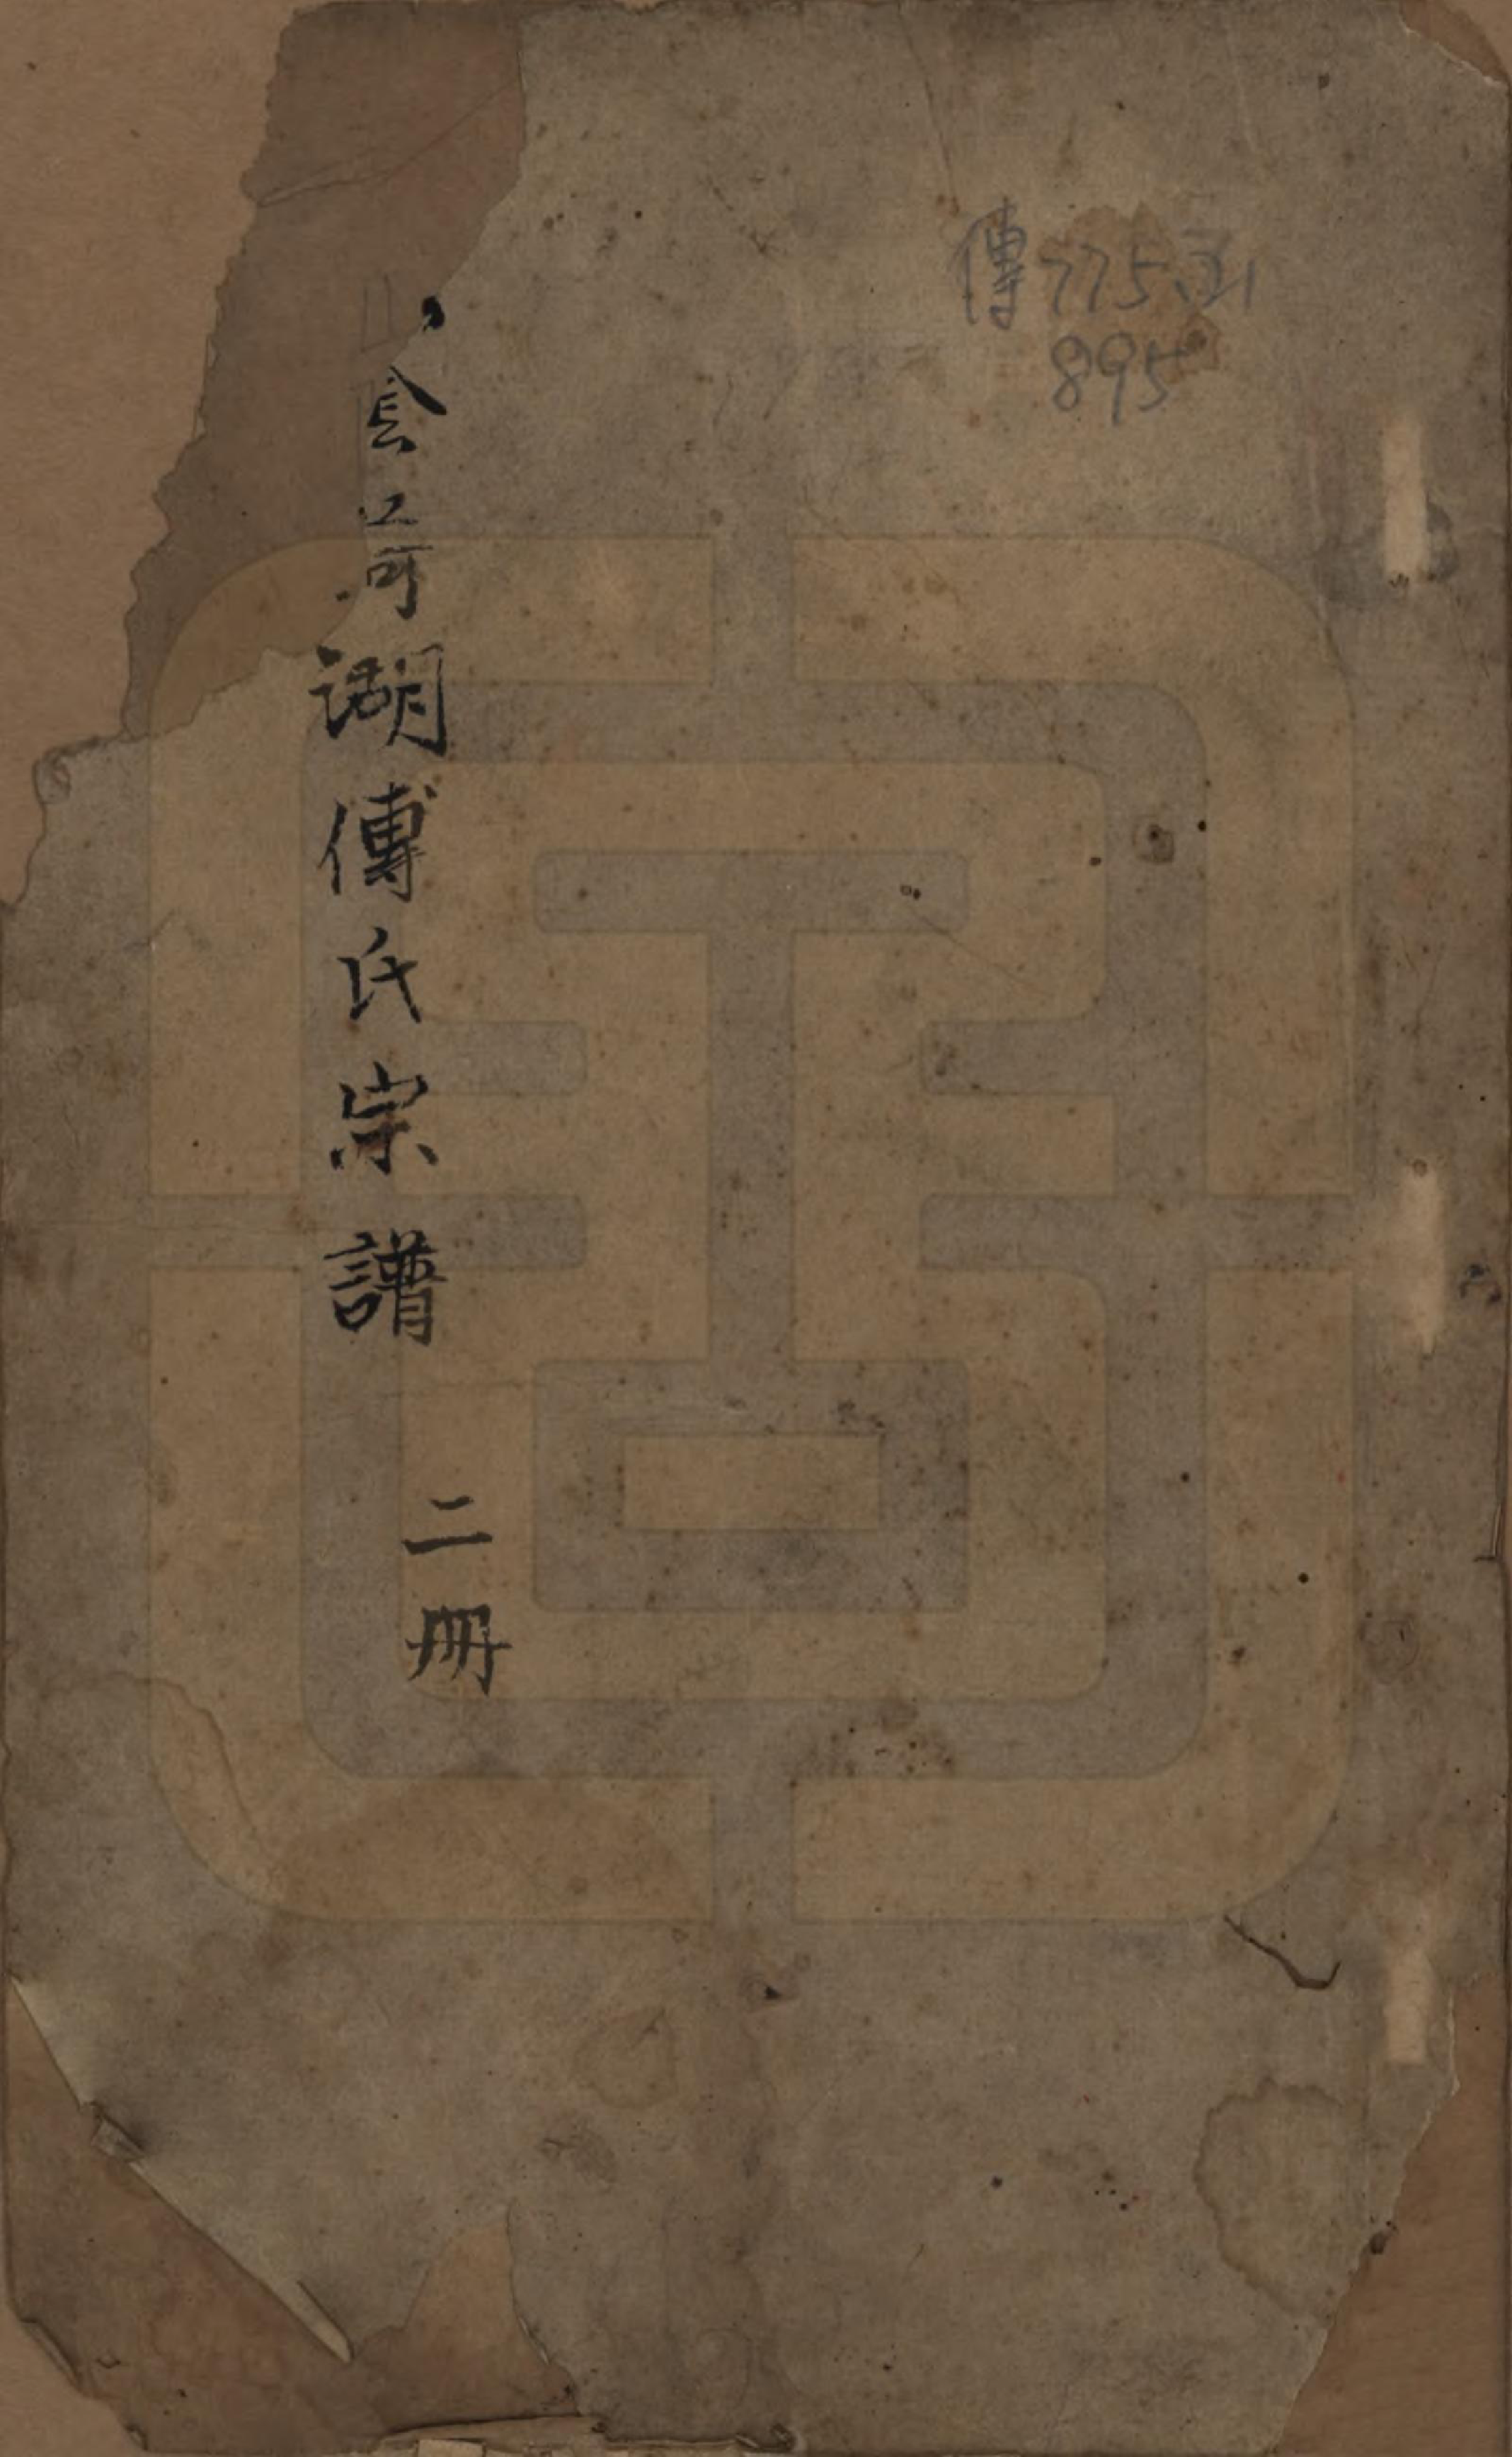 傅775函1
895
山陰前湖傅氏宗譜
二册